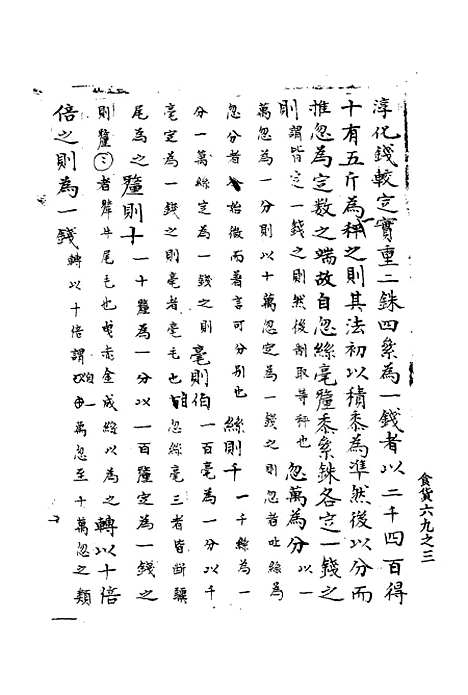 淳化錢較定實重二銖四絫為一錢者以二千四百得
十有五斤為一秤之則其法初以積黍為準然後以分而
推忽為定數之端故自忽絲毫釐黍絫銖各定一錢之
則謂皆定一錢之則然後制取等秤也忽萬為分以一
萬忽為一分則以十萬忽定為一錢之則忽者吐絲為
忽分者始微而著言可分別也絲則千一千絲為一
分一萬絲定為一錢之則毫則伯一百毫為一分以千
毫定為一錢之則毫者毫毛也自忽絲毫三者皆斷驥
尾為之釐則十一十釐為一分以一百釐定為一錢之
則釐者犛牛尾毛也曳赤金成絲以為之轉以十倍
倍之則為一錢轉以十倍謂以萬忽至十萬忽之類
食貨六九之三